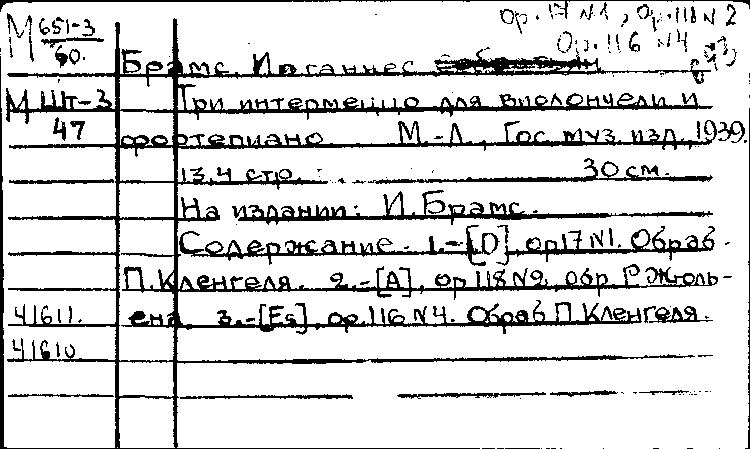 М 651-3
60.
Ор. 17 N1, Ор. 118 N 2
Ор. 116 N4
Брамс, Иоганнес
М Шт-3
47
Три интермеццо для виолончели и
фортепиано М.-Л., Гос. муз. изд., 1939.
13,4 стр. 30 см.
На издании: И. Брамс.
Содержание. 1.-[D], ор 17 N1. Обраб.
П. Кленгеля. 2.-[A], ор 118 N2, обр. Р Жюль-
ена. 3.-[Es], ор. 116 N4. Обраб П Кленгеля.
41611.
41610